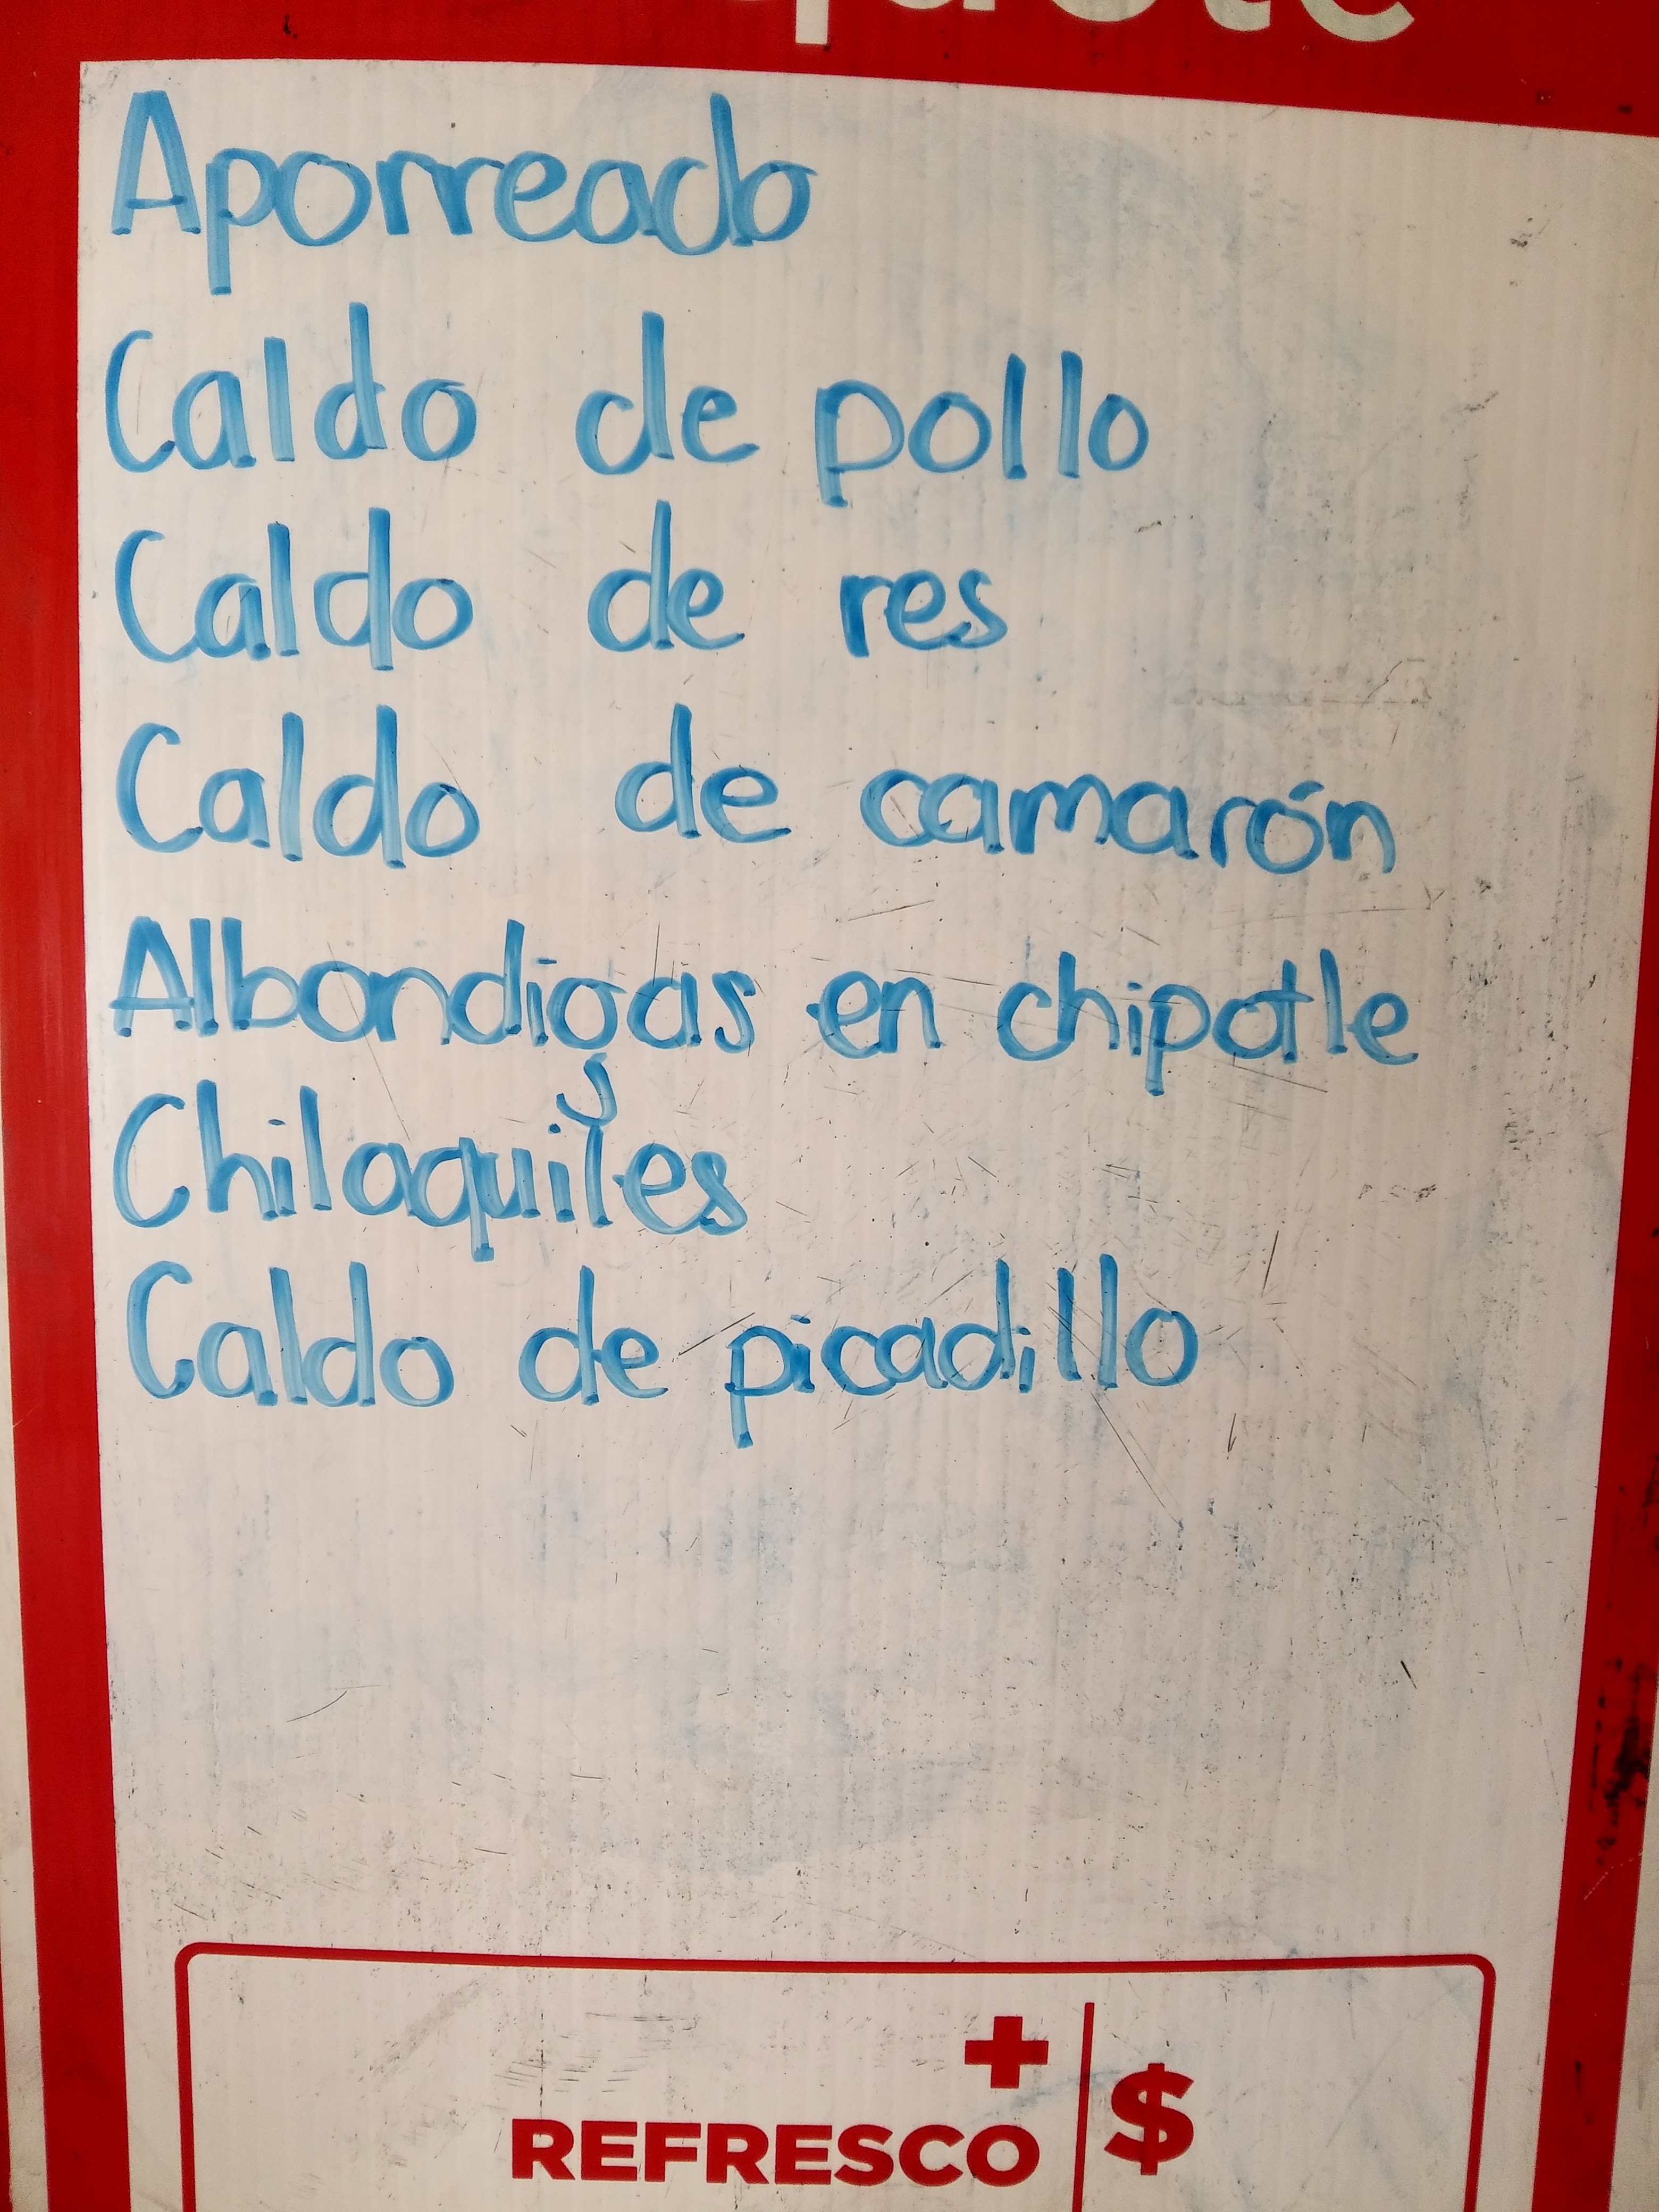 Aporreado
Caldo de pollo
Caldo de res
Caldo de camarón
Albondigas en chipotle
Chilaquiles
Caldo de picadillo
+
REFRESCO
$